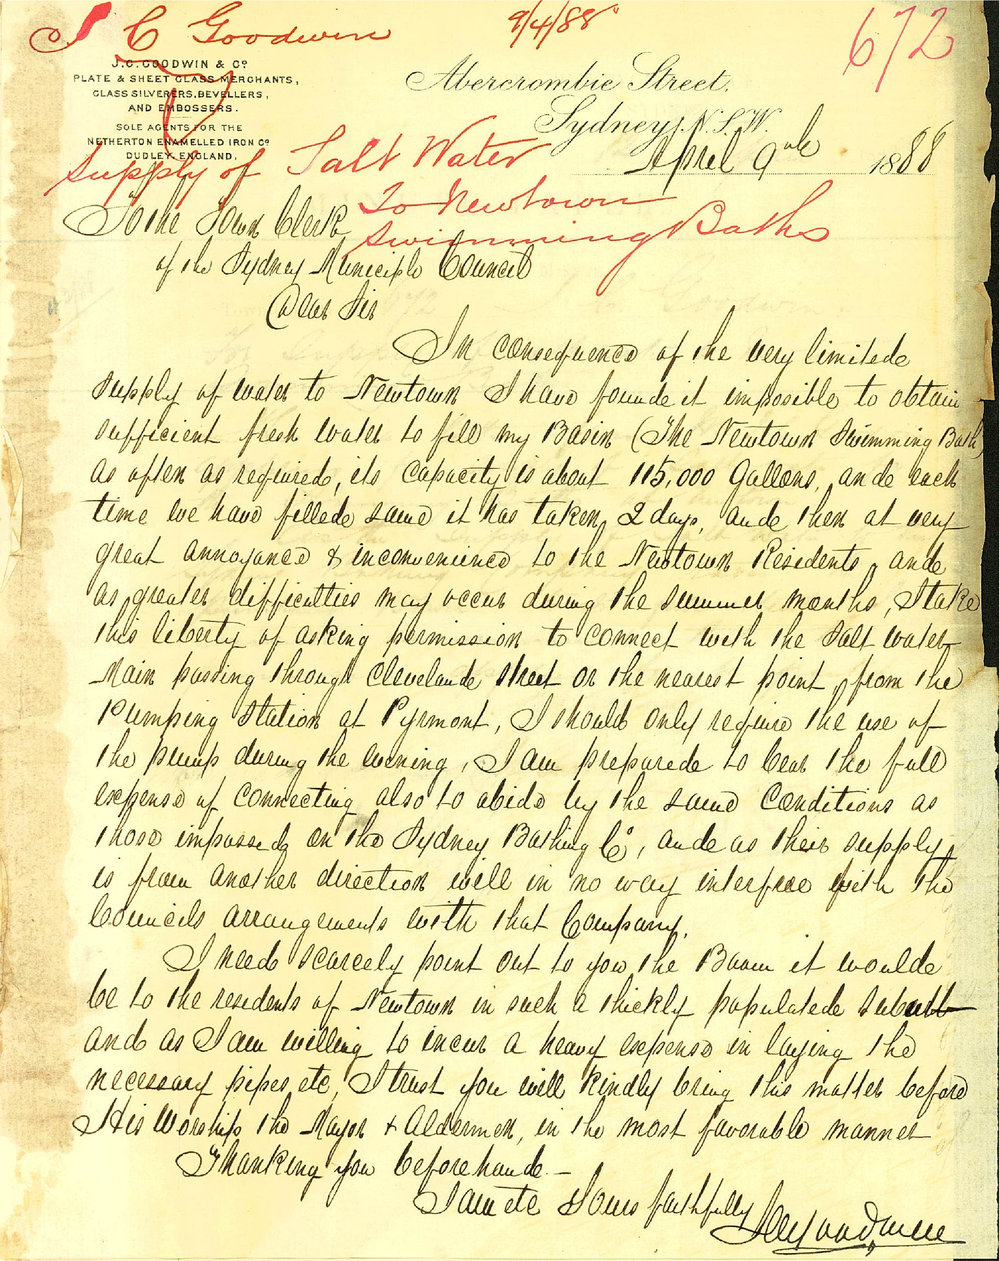 J C Goodwin 9/4/88 672
J. C. GOODWIN & Co
PLATE & SHEET GLASS MERCHANTS,
GLASS SILVERERS, BEVELLERS,
AND EMBOSSERS.
SOLE AGENTS FOR THE
NETHERTON ENAMELLED IRON Co
DUDLEY, ENGLAND.
Abercrombie Street,
Sydney, N.S.W.
April 9th 1888
Supply of Salt Water
To Newtown
Swimming Baths
To the Town Clerk
of the Sydney Municiple Council
Dear Sir
In consequence of the very limitede
supply of water to Newtown I have founde it imposible to obtain
sufficient fresh water to fill my Basin (The Newtown Swimming Bath)
as often as requirede, its capacity is about 115,000 Gallons, ande each
time we have fillede same it has taken 2 days, ande then at very
great annoyance & inconvenience to the Newtown Residents, ande
as greater difficulties may occur during the summer months, I take
this liberty of asking permission to connect with the Salt water
Main passing through Clevelande Street or the nearest point, from the
Pumping Station at Pyrmont, I should only require the use of
the pump during the evening, I am preparede to bear the full
expense of connecting also to abide by the same conditions as
those impossede on the Sydney Bathing Co, ande as their supply
is from another direction will in no way interfere with the
Councils arrangements with that Company.
I need scarcely point out to you the Boom it woulde
be to the residents of Newtown in such a thickly populatede suburb
and as I am willing to incur a heavy expense in laying the
necessary pipes, etc, I trust you will kindly bring this matter before
His Worship the Mayor & Aldermen, in the most favorable manner
Thanking you beforehande -
I am etc Yours faithfully
J C Goodwin